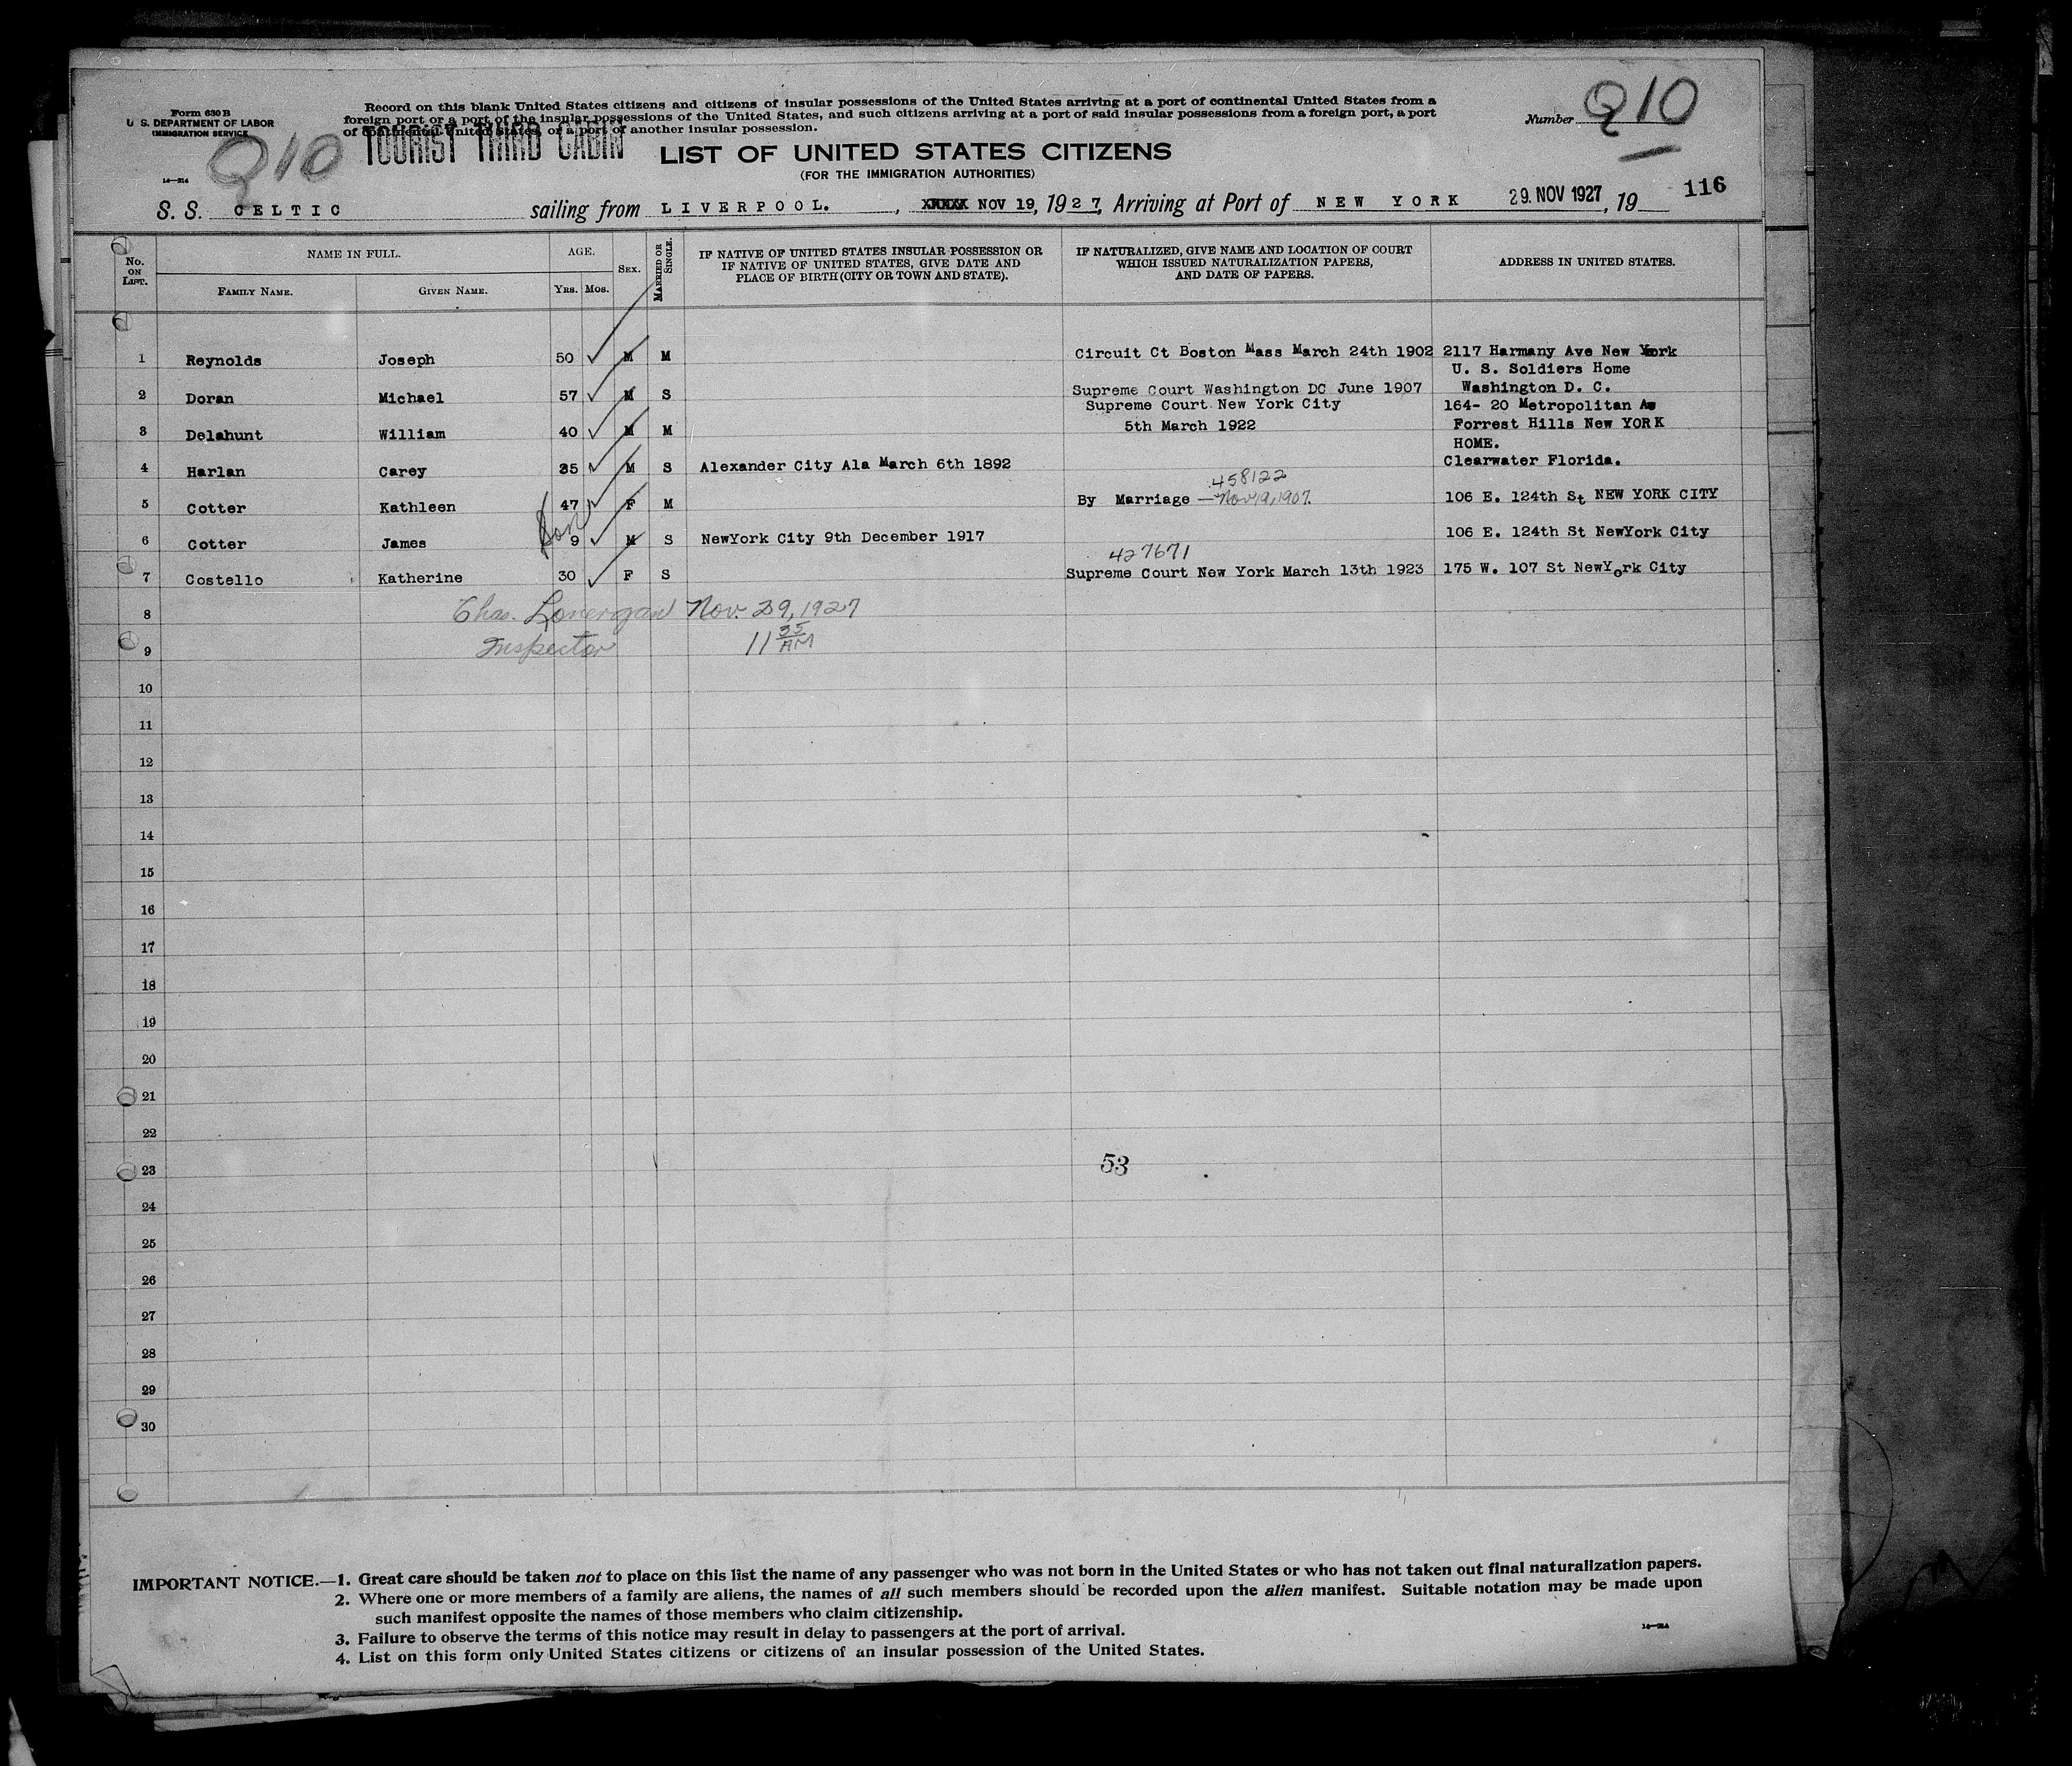 Form 630 B
U. S. DEPARTMENT OF LABOR
IMMIGRATION SERVICE
Record on this blank United States citizens and citizens of insular possessions of the United States arriving at a port of continental United States from a
foreign port or a port of the insular possessions of the United States, and such citizens arriving at a port of said insular possessions from a foreign port, a port
of continental United States, or a port of another insular possession.
Number Q10
Q10
TOURIST THIRD CABIN
LIST OF UNITED STATES CITIZENS
(FOR THE IMMIGRATION AUTHORITIES)
14—214
S. S. CELTIC sailing from LIVERPOOL. , XXXXX NOV 19, 1927, Arriving at Port of NEW YORK 29. NOV 1927, 19 116
No. ON LIST.
NAME IN FULL.
FAMILY NAME.
GIVEN NAME.
AGE.
YRS. MOS.
SEX.
MARRIED OR SINGLE.
IF NATIVE OF UNITED STATES INSULAR POSSESSION OR
IF NATIVE OF UNITED STATES, GIVE DATE AND
PLACE OF BIRTH (CITY OR TOWN AND STATE).
IF NATURALIZED, GIVE NAME AND LOCATION OF COURT
WHICH ISSUED NATURALIZATION PAPERS,
AND DATE OF PAPERS.
ADDRESS IN UNITED STATES.
1 Reynolds Joseph 50 M M Circuit Ct Boston Mass March 24th 1902 2117 Harmany Ave New York
U. S. Soldiers Home
2 Doran Michael 57 M S Supreme Court Washington DC June 1907 Washington D. C.
Supreme Court New York City 164- 20 Metropolitan Av
3 Delahunt William 40 M M 5th March 1922 Forrest Hills New YORK
HOME.
4 Harlan Carey 35 M S Alexander City Ala March 6th 1892 Clearwater Florida.
458122
5 Cotter Kathleen 47 F M By Marriage — Nov 19, 1907. 106 E. 124th St NEW YORK CITY
Son
6 Cotter James 9 M S NewYork City 9th December 1917 106 E. 124th St NewYork City
427671
7 Costello Katherine 30 F S Supreme Court New York March 13th 1923 175 W. 107 St NewYork City
8 Chas. Lonergan Nov. 29, 1927
9 Inspector 11 35 AM
10
11
12
13
14
15
16
17
18
19
20
21
22
23 53
24
25
26
27
28
29
30
IMPORTANT NOTICE.—1. Great care should be taken not to place on this list the name of any passenger who was not born in the United States or who has not taken out final naturalization papers.
2. Where one or more members of a family are aliens, the names of all such members should be recorded upon the alien manifest. Suitable notation may be made upon
such manifest opposite the names of those members who claim citizenship.
3. Failure to observe the terms of this notice may result in delay to passengers at the port of arrival.
14—214
4. List on this form only United States citizens or citizens of an insular possession of the United States.